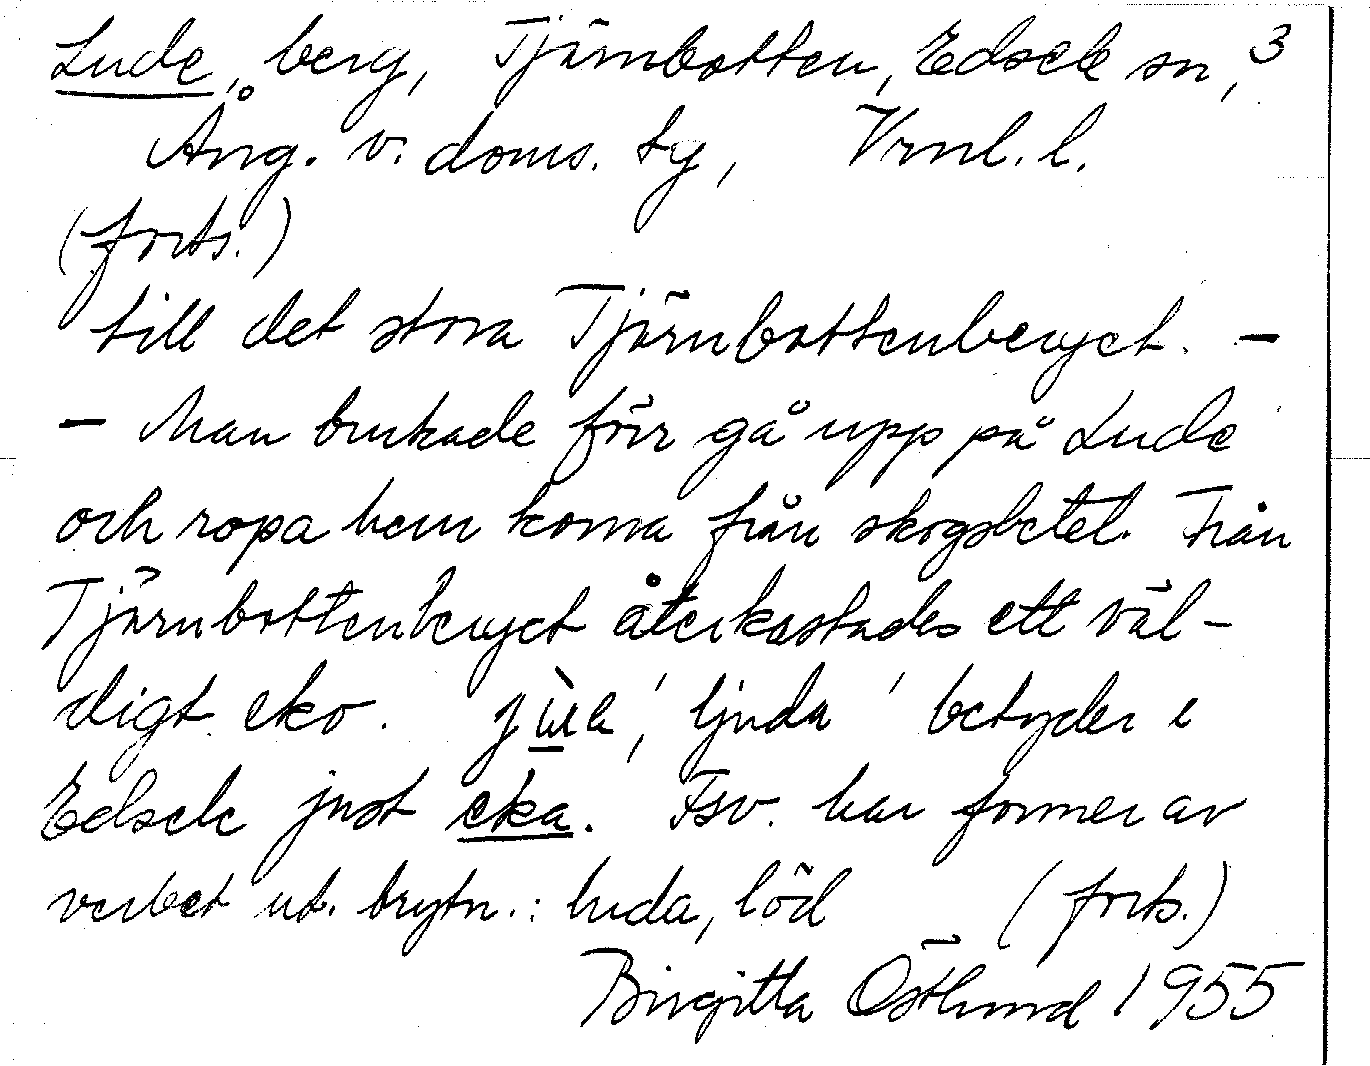 Lude, berg, Tjärnbotten, Edsele sn, 3
Ång. v. doms. tg, Vrnl. l.
(forts.)
till det stora Tjärnbottenberget. –
– Man brukade förr gå upp på Lude
och ropa hem korna från skogsbetet. Från
Tjärnbottenberget återkastades ett väl-
digt eko. 'ljuda' betyder i
Edsele just eka. Fsv. har former av
verbet ut. brytn.: luda, löd (forts.)
Birgitta Östlund 1955